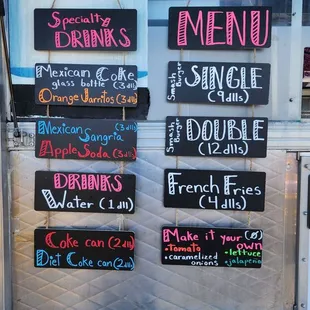 Specialty
DRINKS
Mexican Coke
glass bottle (3 dlls)
Orange Jarritos (3 dlls)
Mexican Sangria (3 dlls)
Apple Soda (3 dlls)
DRINKS
Water (1 dll)
Coke can (2 dlls)
Diet Coke can (2 dlls)
MENU
Smash Burger
SINGLE
(9 dlls)
Smash Burger
DOUBLE
(12 dlls)
French Fries
(4 dlls)
Make it your own
• Tomato
• lettuce
• caramelized onions
• jalapeño